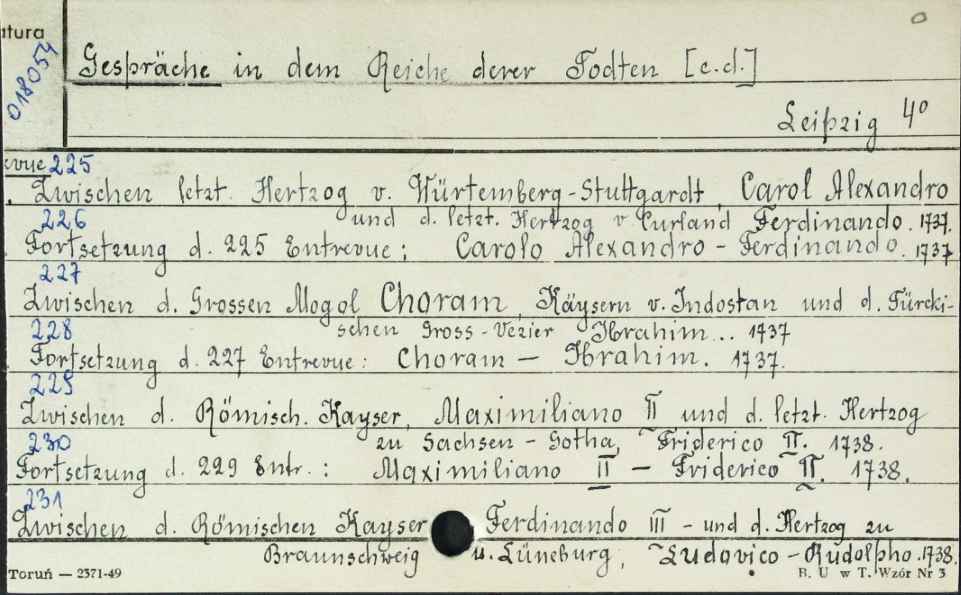 atura
018054
Gespräche in dem Reiche derer Todten [c.d.]
Leipzig 4°
evue 225
. Zwischen letzt. Hertzog v. Würtemberg-Stuttgardt, Carol Alexandro
226 und d. letzt. Hertzog v Curland Ferdinando. 1737.
. Fortsetzung d. 225 Entrevue: Carolo Alexandro - Ferdinando. 1737
227
Zwischen d. Grossen Mogol Choram, Käysern v. Indostan und d. Türcki-
228 schen Gross-Vezier Ibrahim... 1737
. Fortsetzung d. 227 Entrevue: Choram — Ibrahim. 1737.
229
Zwischen d. Römisch. Kayser, Maximiliano II und d. letzt. Hertzog
230 zu Sachsen - Gotha, Friderico II. 1738.
Fortsetzung d. 229 Entr.: Maximiliano II — Friderico II. 1738.
231
Zwischen d. Römischen Kayser Ferdinando III - und d. Hertzog zu
Braunschweig u. Lüneburg, Ludovico - Rudolpho. 1738.
Toruń — 2371-49 B. U w T. Wzór Nr 3